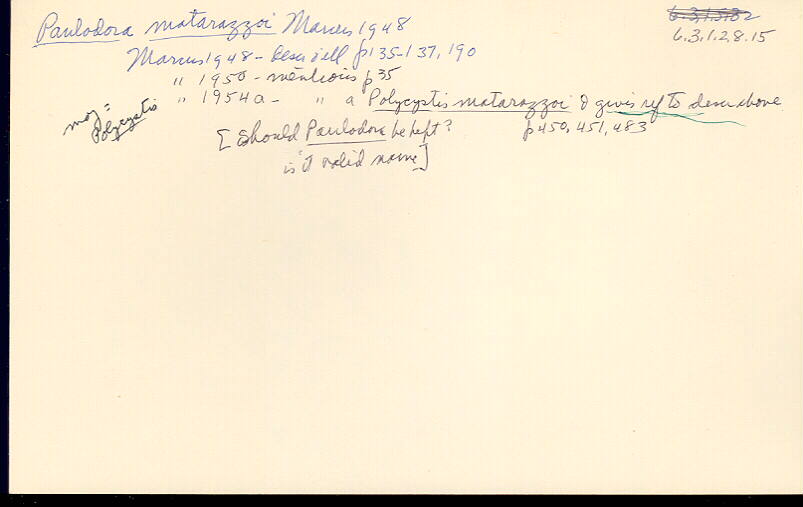 Paulodora matarazzoi Marcus 1948
6.3.1.2.8.15
Marcus 1948 - descr & ill p135-137, 190
" 1950 - mentions p35
" 1954a - " a Polycystis matarazzoi & gives ref to descr above
p450, 451, 483
may =
Polycystis
[Should Paulodora be kept?
is it valid name]